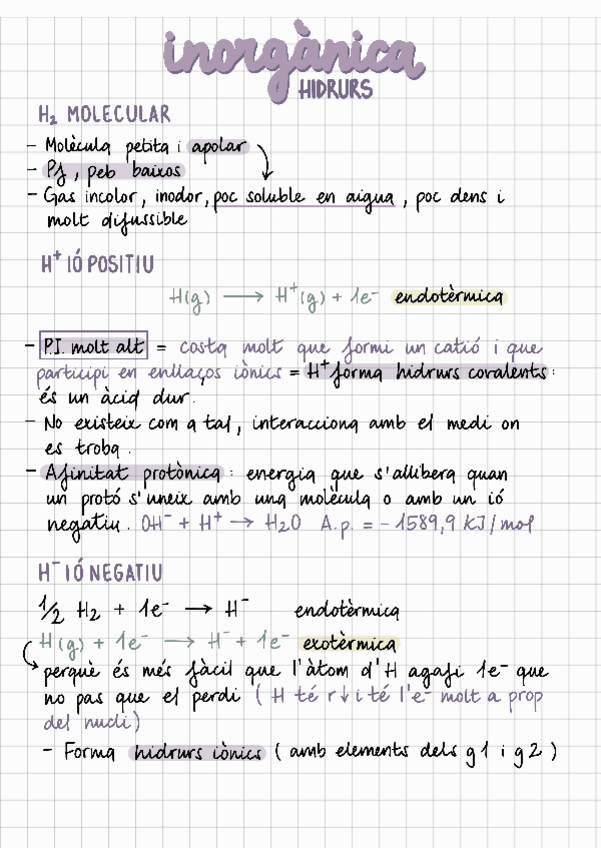 inorgànica
HIDRURS
H₂ MOLECULAR
- Molècula petita i apolar
- Pf, peb baixos
- Gas incolor, inodor, poc soluble en aigua, poc dens i
molt difussible
H⁺ IÓ POSITIU
H(g) → H⁺(g) + 1e⁻ endotèrmica
- P.I. molt alt = costa molt que formi un catió i que
participi en enllaços iònics = H⁺ forma hidrurs covalents:
és un àcid dur.
- No existeix com a tal, interacciona amb el medi on
es troba.
- Afinitat protònica: energia que s'allibera quan
un protó s'uneix amb una molècula o amb un ió
negatiu. OH⁻ + H⁺ → H₂O A.p. = -1589,9 KJ/mol
H⁻ IÓ NEGATIU
1/2 H₂ + 1e⁻ → H⁻ endotèrmica
H(g) + 1e⁻ → H⁻ + 1e⁻ exotèrmica
perquè és més fàcil que l'àtom d'H agafi 1e⁻ que
no pas que el perdi (H té r↓ i té l'e⁻ molt a prop
del nucli)
- Forma hidrurs iònics (amb elements dels g1 i g2)